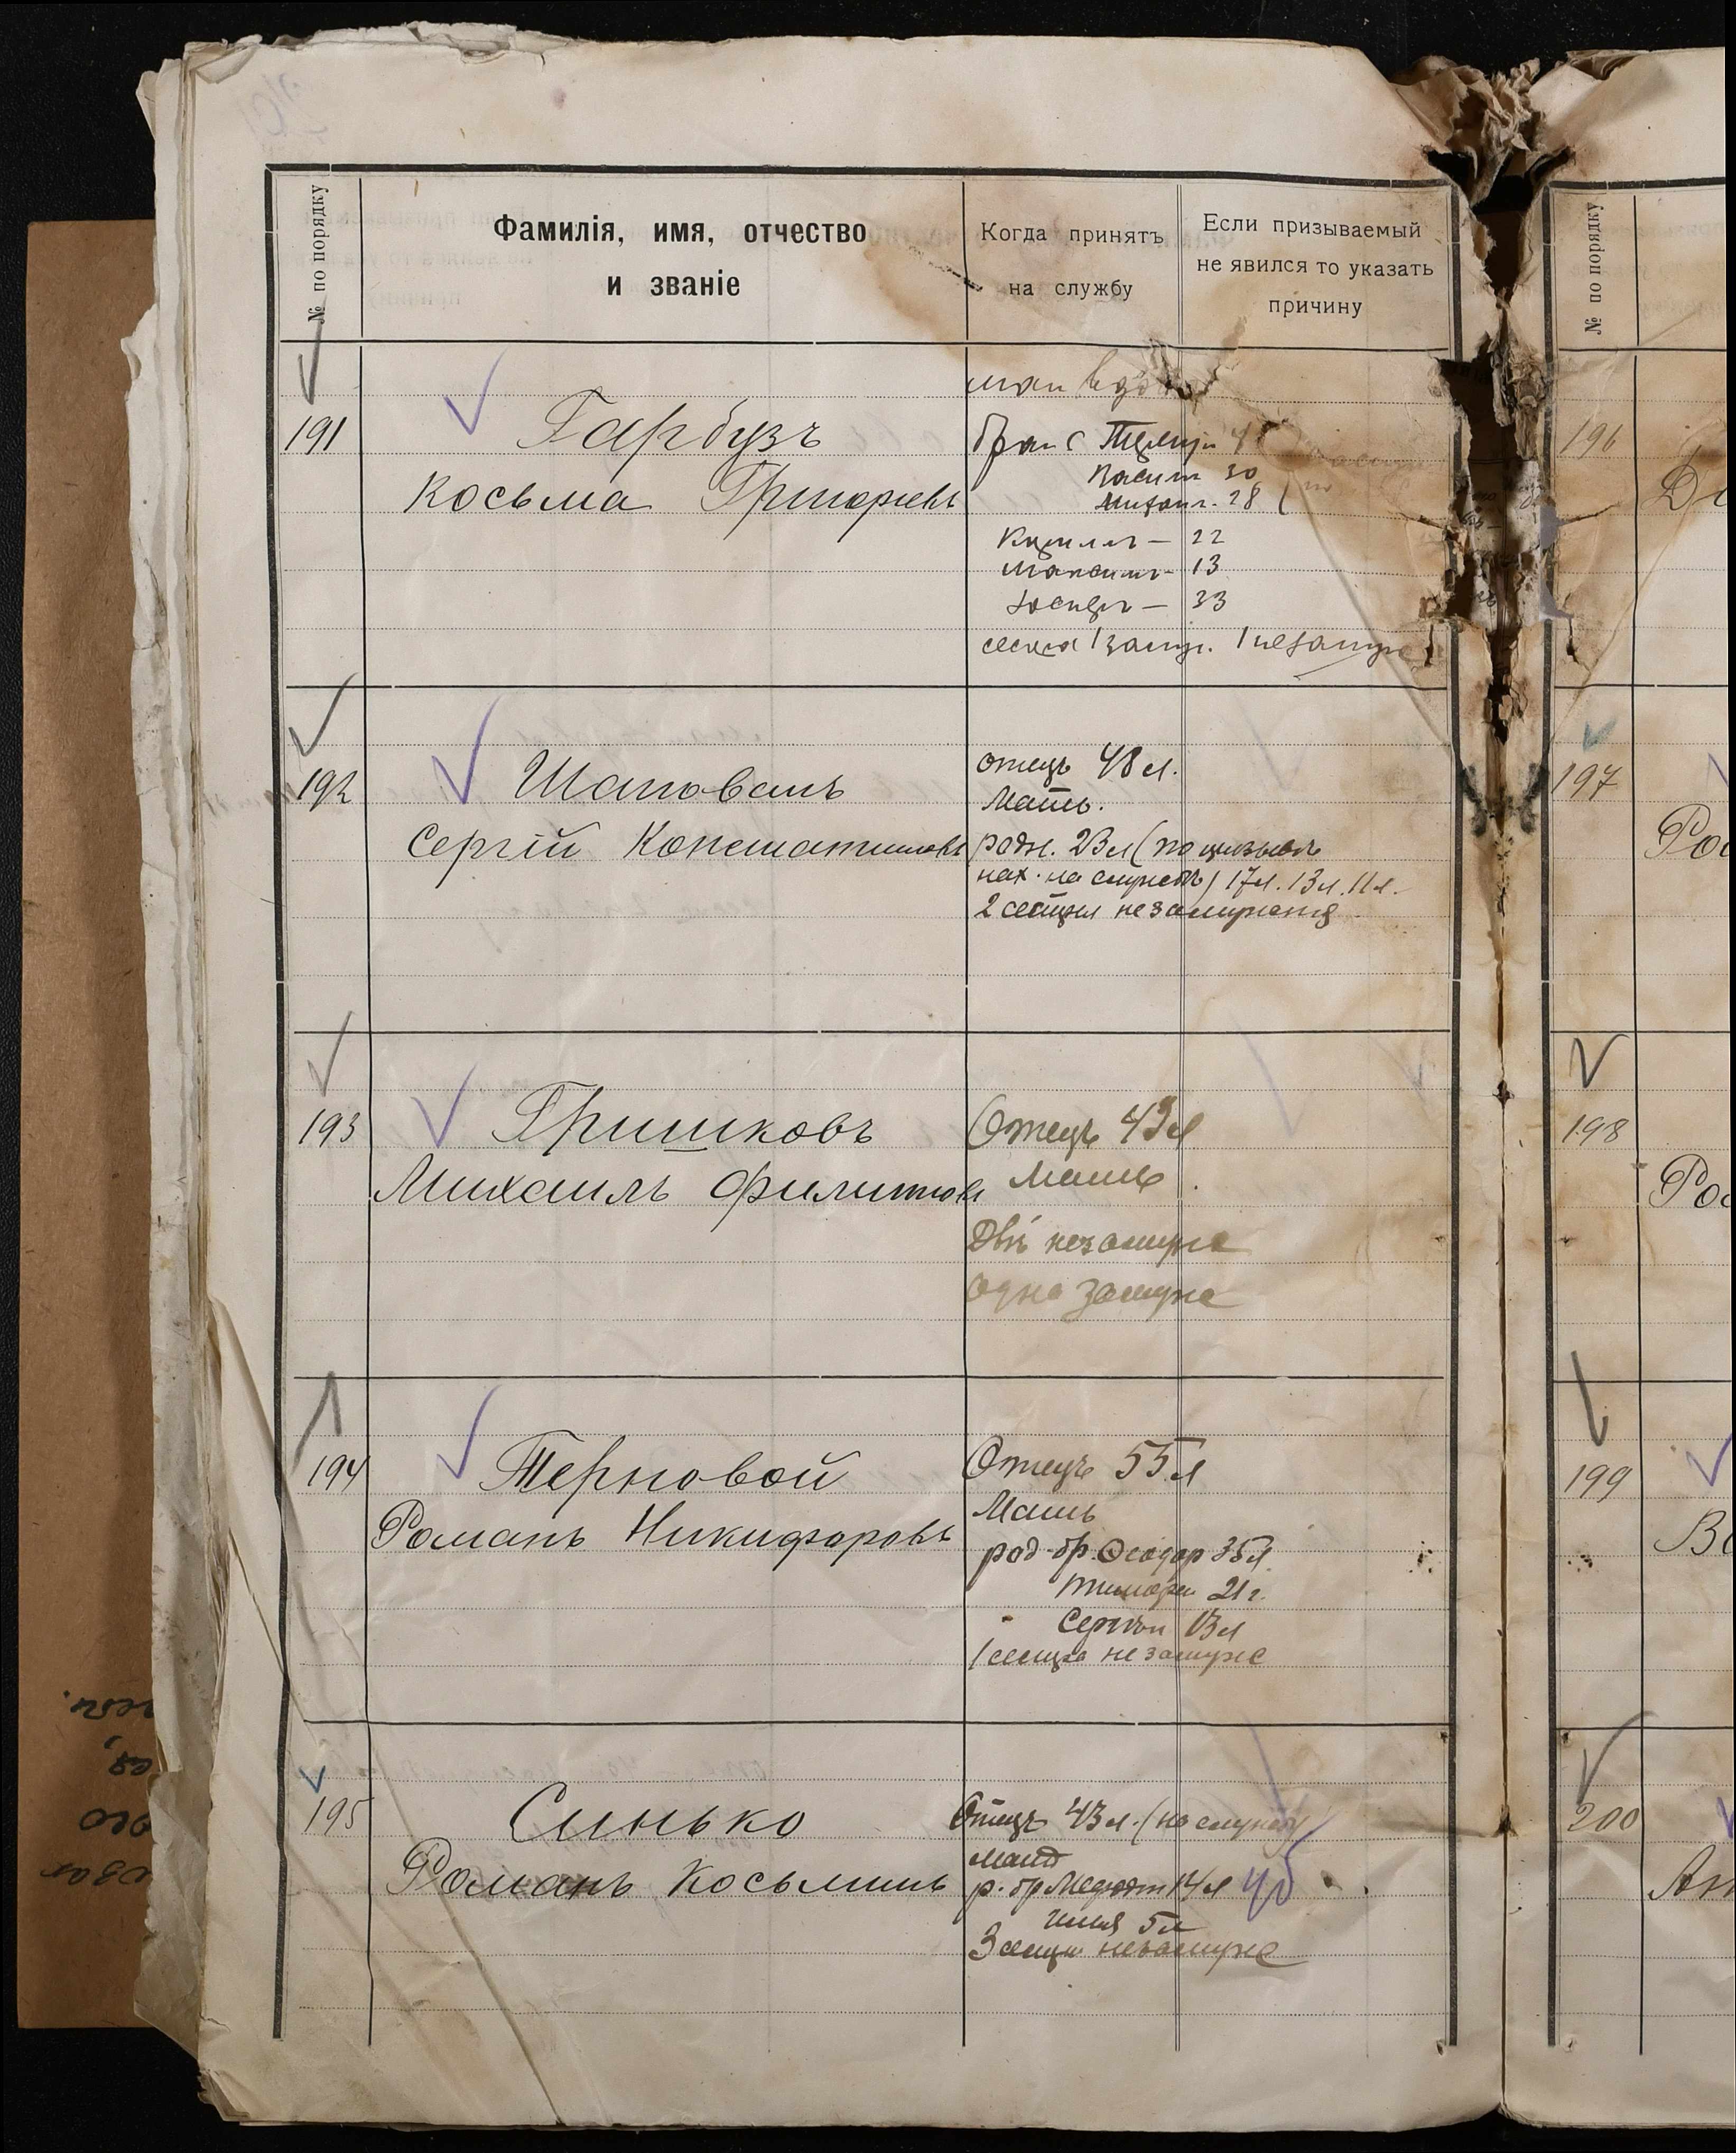 № по порядку
Фамилія, имя, отчество
и званіе
Когда принятъ
на службу
Если призываемый
не явился то указать
причину
191
Гарбузъ
Косьма Григорьевъ
мать вдова
30
28
Кириллъ — 22
Максимъ — 13
Іосифъ — 33
сестра 1 замуж. 1 незамуж
192
Шаповалъ
Сергій Константиновъ
отецъ 48 л.
Мать.
родн. 23 л (по призыву
нах. на службѣ) 17 л. 13 л. 11 л.
2 сестры незамужния
193
Гришковъ
Михаилъ Филиповъ
Отецъ 43 л
Мать.
Двѣ незамуже
Одна замуже
194
Терновой
Романъ Никифоровъ
Отецъ 55 л
Мать
род. бр. Феодор 35 л
Тимофеи 21 г.
Сергѣи 13 л
1 сестра незамуже
195
Синько
Романъ Косьминъ
Отецъ 43 л. (на службѣ)
мать
р. бр 14 л
Илья 5 л
3 сестры незамуже
№ по порядку
196
197
198
199
200